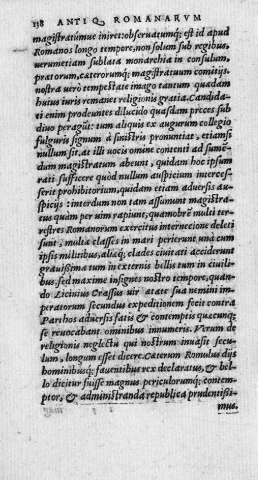 138 ANTIQ. ROMANARVM
magistratūmue iniret: obseruatumq; est id apud
Romanos longo tempore, non solum sub regibus,
verumetiam sublata monarchia in consulum,
prætorum, cæterorumq; magistratuum comitijs.
nostra verò tempestate imago tantum quædam
huius iuris remanet religionis gratia. Candida-
ti enim prodeuntes diluculo quasdam preces sub
diuo peragūt: tum aliquis ex augurum collegio
fulguris signum à sinistris pronuntiat, etiamsi
nullum sit. at illi vocis omine contenti ad sumē-
dum magistratum abeunt, quidam hoc ipsum
rati sufficere quòd nullum auspicium interces-
serit prohibitorium, quidam etiam aduersis au-
spicijs: interdum non tam assumunt magistra-
tus quàm per uim rapiunt; quamobrē multi ter-
restres Romanorum exercitus internecione deleti
sunt, multæ classes in mari perierunt unà cum
ipsis militibus, aliæq; clades ciuitati acciderunt
grauissimæ tum in externis bellis tum in ciuili-
bus, sed maximè insignes nostro tempore, quan-
do Licinius Crassus uir ætate sua nemini im-
peratorum secundus expeditionem fecit contra
Parthos aduersis fatis & contemptis quæcunq;
se reuocabant ominibus innumeris. Verum de
religionis neglectu qui nostrum inuasit secu-
lum, longum esset dicere. Cæterum Romulus dijs
hominibusq; fauentibus rex declaratus, & bel-
lo dicitur fuisse magnus periculorumq; contem-
ptor, & administranda republica prudentissi-
mus.